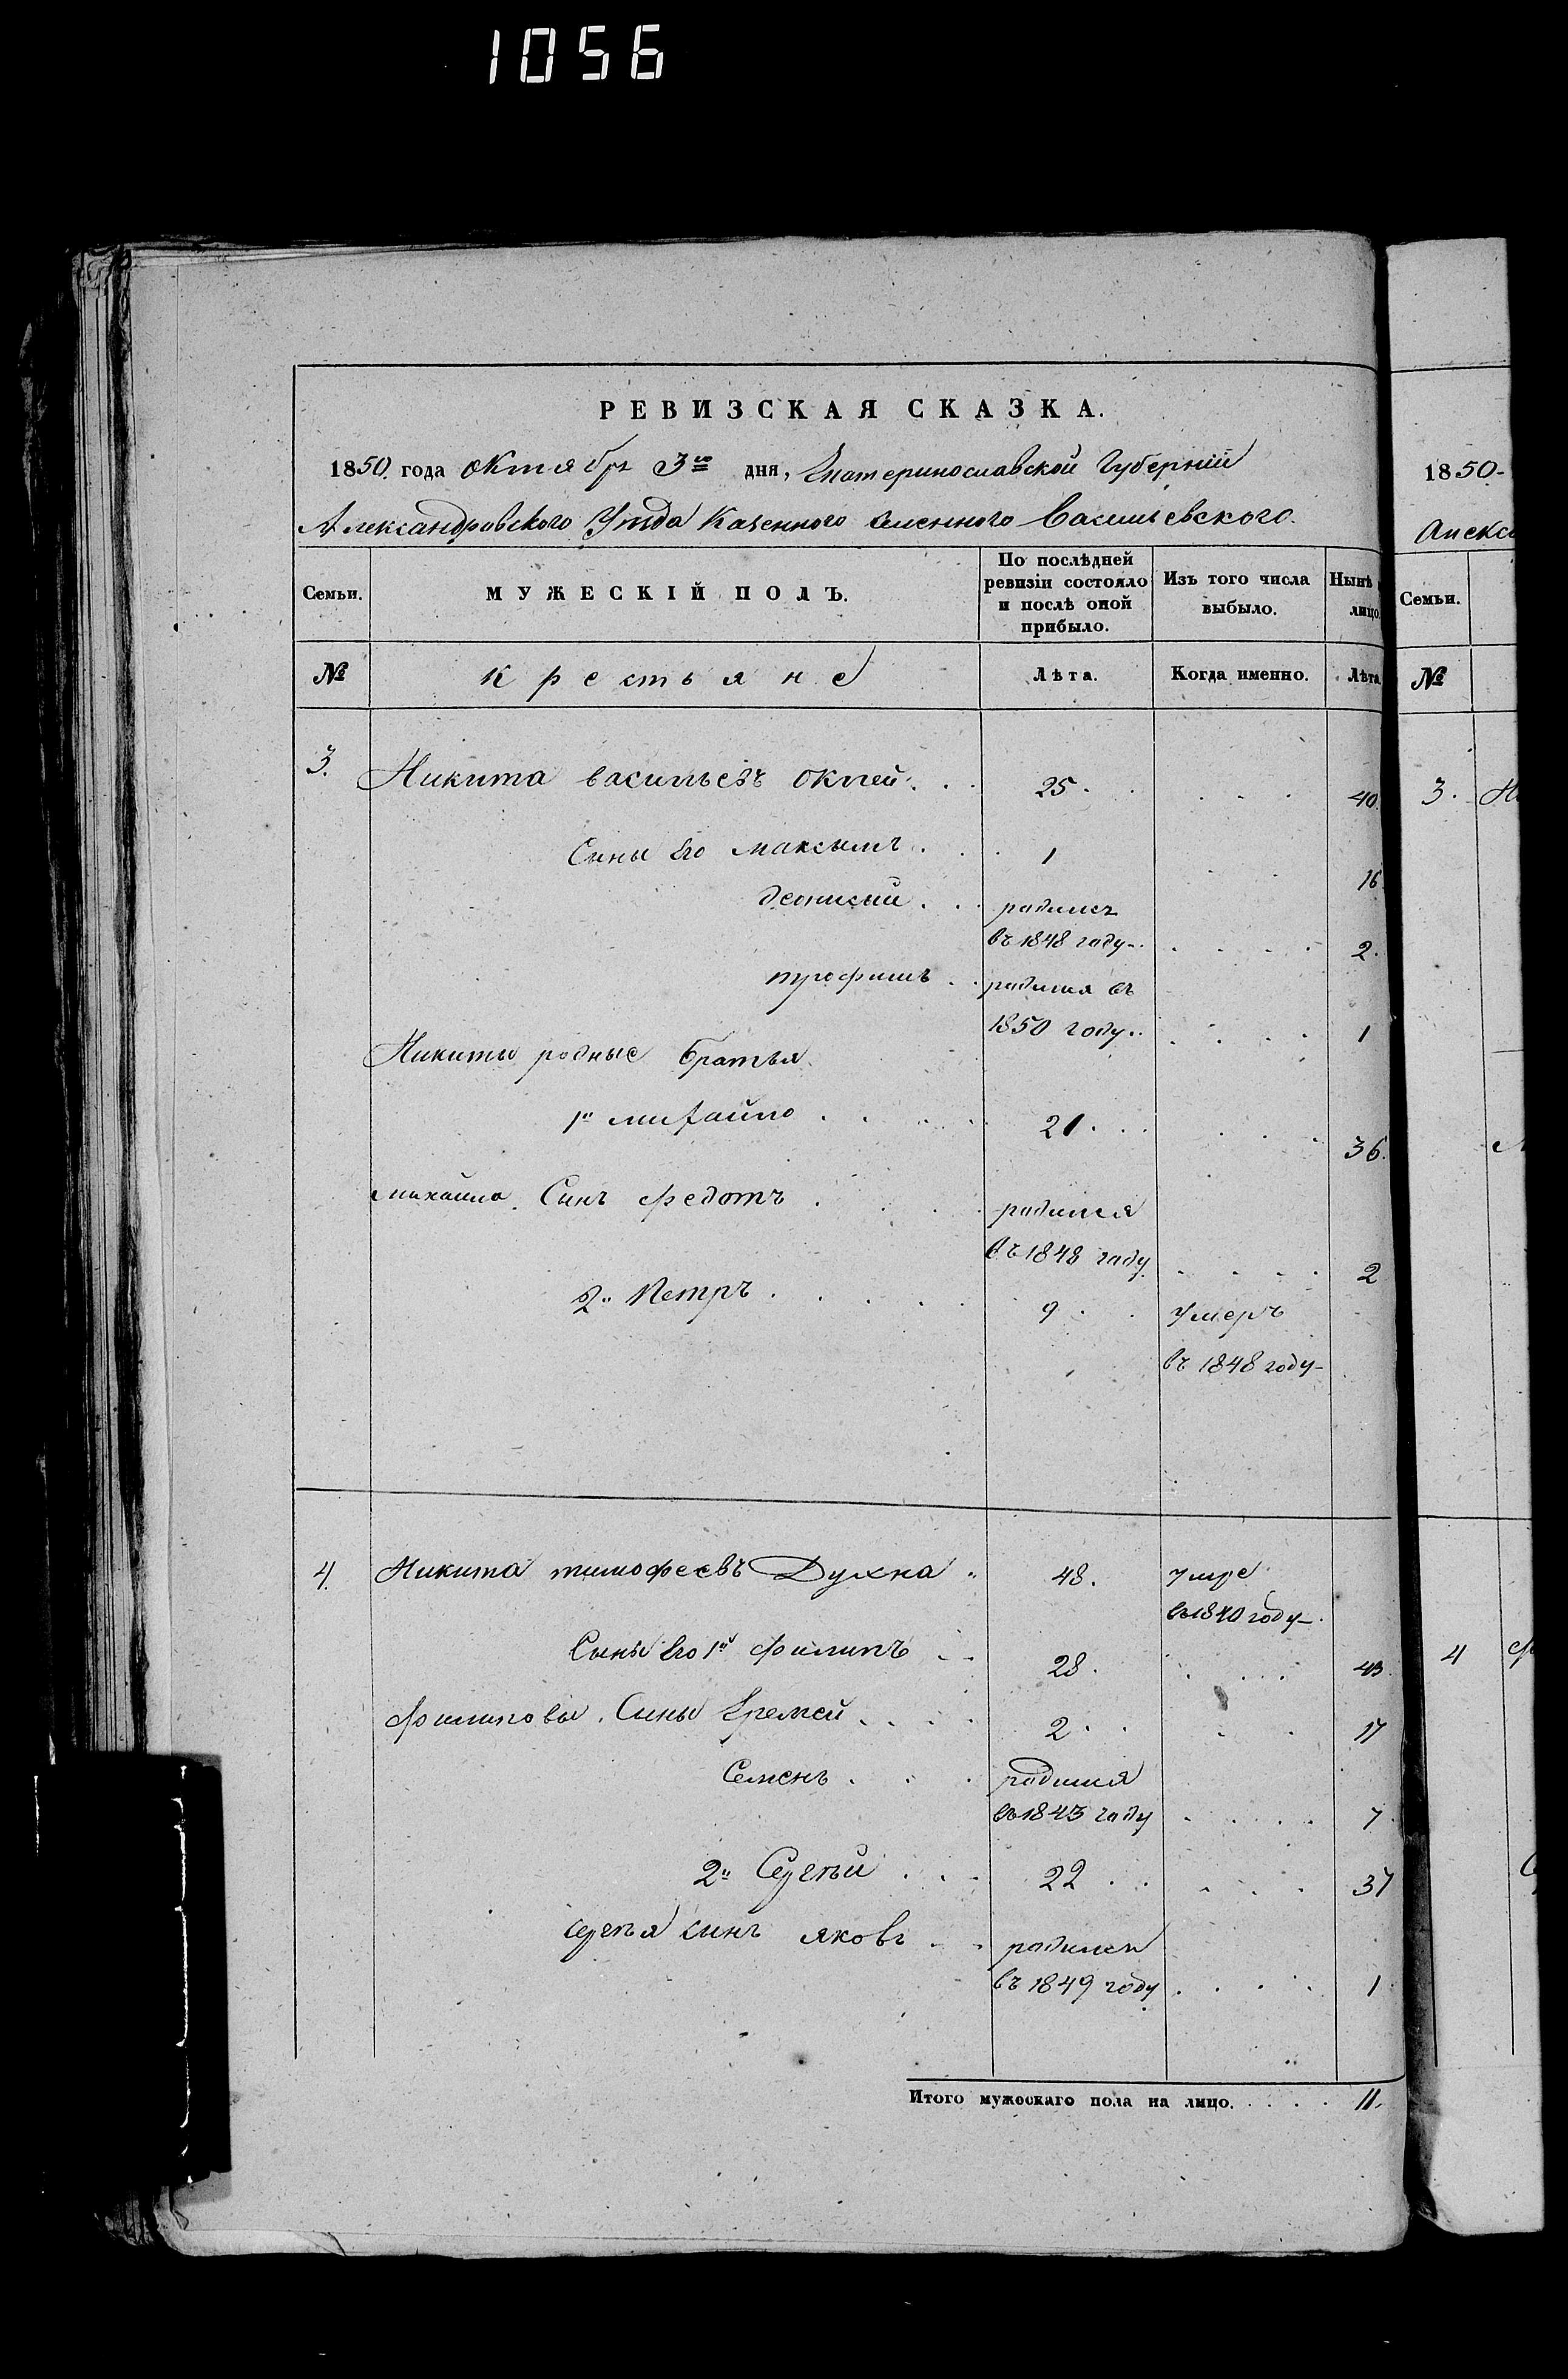 1056
РЕВИЗСКАЯ СКАЗКА.
1850. года октября 3го дня, Екатеринославской Губерніи
Александровского Уезда Казенного Селения Васильевского.
Семьи. МУЖЕСКІЙ ПОЛЪ. По послѣдней ревизіи состояло и послѣ оной прибыло. Изъ того числа выбыло. Нынѣ лицо.
№ крестьяне Лѣта. Когда именно. Лѣта
3. Никита васильевъ Оклей 25. 40.
Сины Его максимъ 1 16
деонисий родился
въ 1848 году 2.
трофимъ родился въ
1850 году 1
Никиты родные братья
1й михайло 21. 36.
михайла Синъ федотъ родился
въ 1848 году 2
2й Петръ 9 умеръ
въ 1848 году
4. Никита тимофеевъ Духна 48. умре
въ 1840 году
Сыны Его 1й филипъ 28. 43.
филиповы Сины Еремей 2 17
Семенъ родился
въ 1843 году 7
2й Сергей 22 37
сергея синъ яковъ родился
въ 1849 году 1
Итого мужескаго пола на лицо. 11.
1850
Алекс
Семьи.
№
3. Н
4 ф